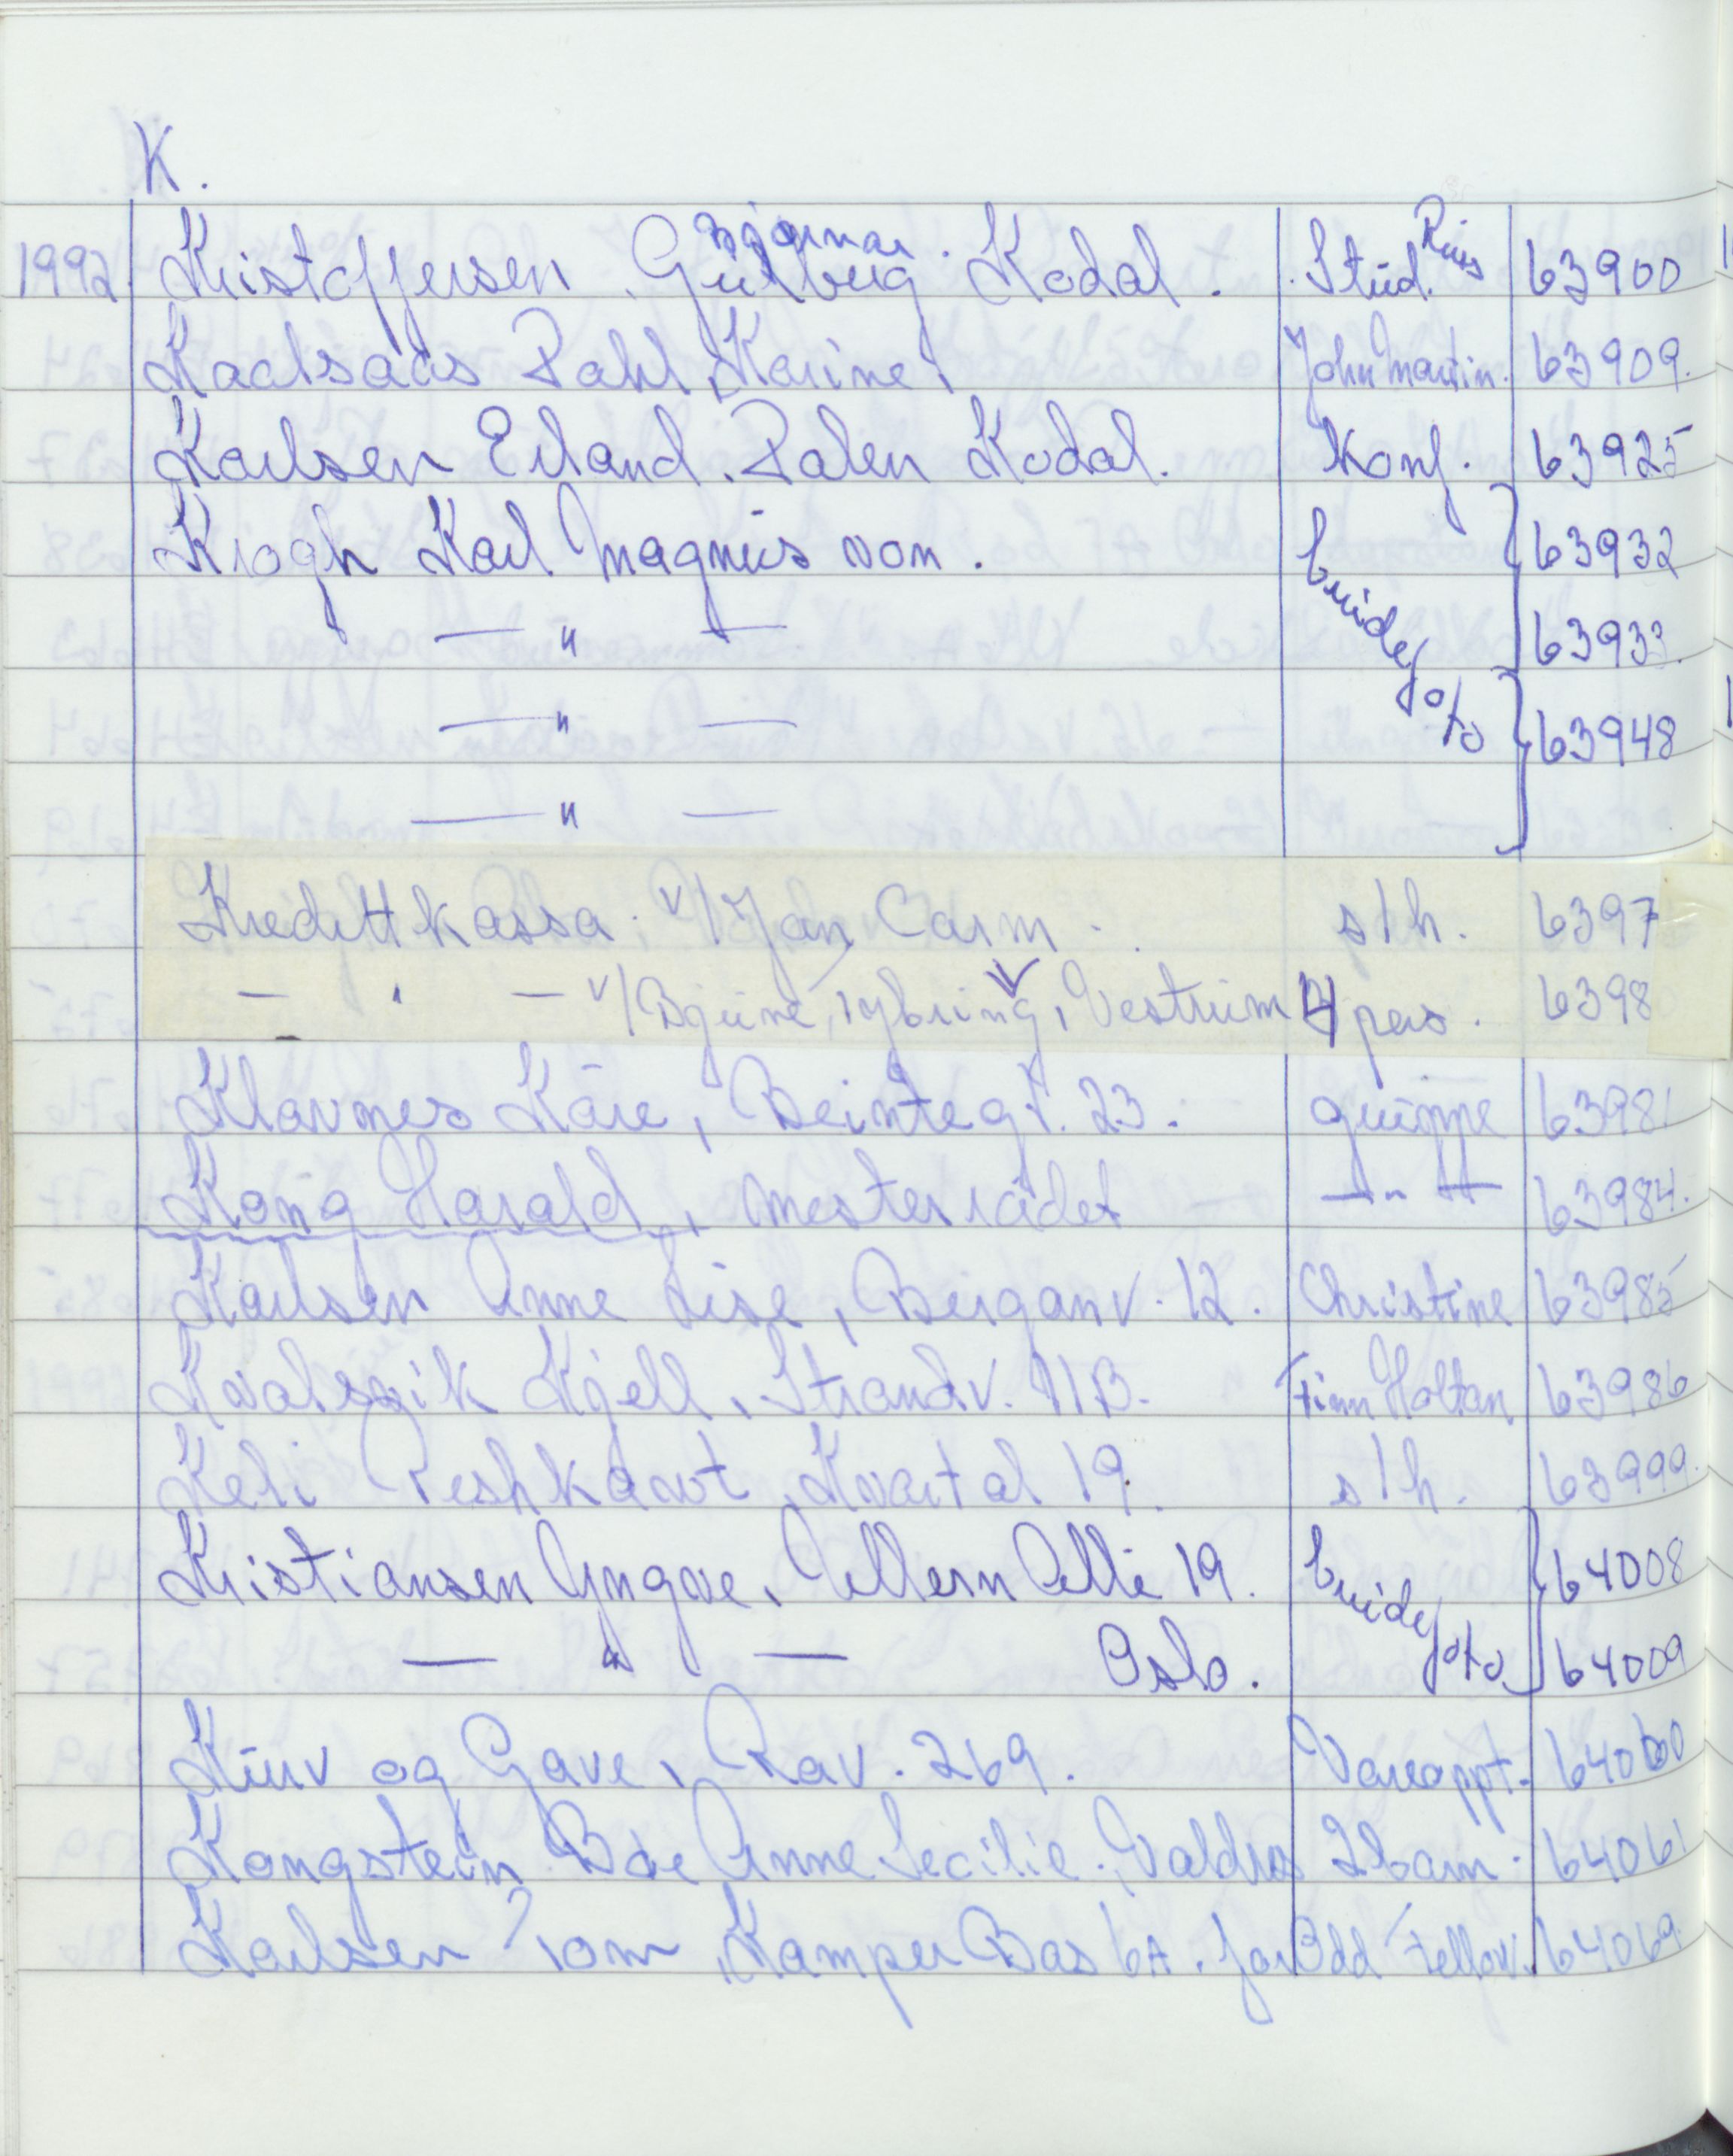 K.
Bjørnar. Russ
1992 Kristoffersen Gullbrug Kodal. Stud. 63900
Kaalsaas Dahl, Karine, John Martin. 63909.
Karlsen Erland. Dalen Kodal. Konf. 63925
Krogh Karl Magnus von. brudefoto 63932
— " — 63933.
— " — 63948
— " —
Kredittkassa. v/Jan Carm. s/h. 6397
— " — v/Bjune, Nybring, Vestrum 4 pers. 6398
Klavnes Kåre, Beintegt. 23. gruppe 63981
Kong Harald, mesterrådet — " — 63984.
Karlsen Anne Lise, Berganv. 12. Christine 63985
Kvalsvik Kjell, Strandv. 11B. Finn Holtan. 63986
Keli Peshkawt, Kvartal 19. s/h. 63999.
Kristiansen Yngve, Ullern Allé 19. brudefoto 64008
— " — Oslo. 64009
Kurv og Gave, Rav. 269. Vareoppt. 64060
Kongstein Bøe Anne Cecilie. Valdres 2 barn. 64061
Karlsen Tom, Kamper Bas 6A. for Odd Fellow. 64069